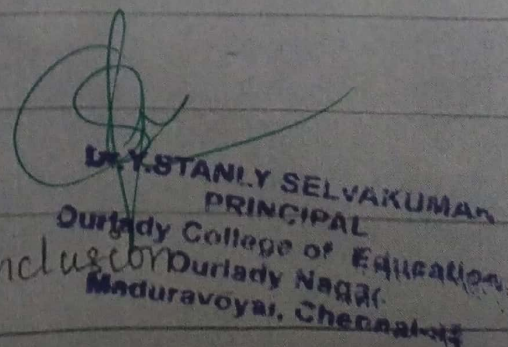 Dr.Y.STANLY SELVAKUMAR
PRINCIPAL
Ourlady College of Education
nclusion Ourlady Nagar
Maduravoyal, Chennai